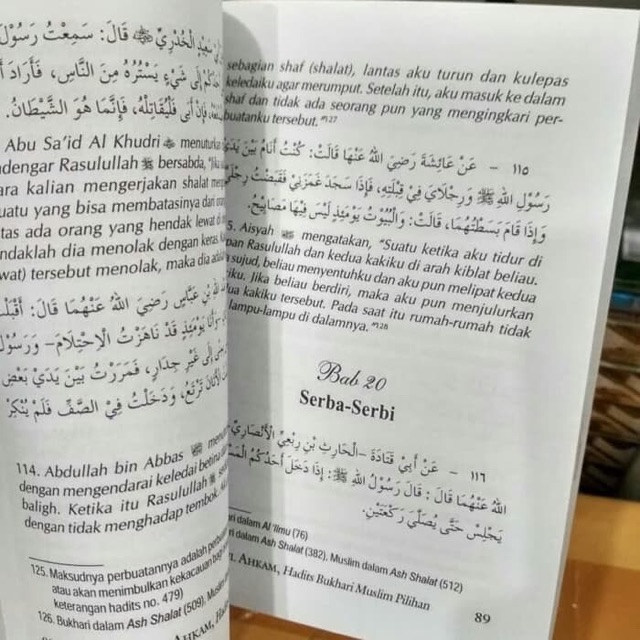 سَعِيْدٍ الْخُدْرِيِّ ﷺ قَالَ: سَمِعْتُ رَسُوْلَ
إِلَى شَيْءٍ يَسْتُرُهُ مِنَ النَّاسِ، فَأَرَادَ
فَإِنْ أَبَى فَلْيُقَاتِلْهُ، فَإِنَّمَا هُوَ الشَّيْطَانُ.
Abu Sa'id Al Khudri menuturkan
dengar Rasulullah ﷺ bersabda, "Jika
ara kalian mengerjakan shalat meng
uatu yang bisa membatasinya dari oran
tas ada orang yang hendak lewat di
ndaklah dia menolak dengan keras.
wat) tersebut menolak, maka dia ada
بْنِ عَبَّاسٍ رَضِيَ اللهُ عَنْهُمَا قَالَ: أَقْبَلْ
وَأَنَا يَوْمَئِذٍ قَدْ نَاهَزْتُ الْاِحْتِلَامَ- وَرَسُوْلُ
إِلَى غَيْرِ جِدَارٍ، فَمَرَرْتُ بَيْنَ يَدَيْ بَعْضِ
تَرْتَعُ، وَدَخَلْتُ فِي الصَّفِّ فَلَمْ يُنْكِرْ
114. Abdullah bin Abbas
dengan mengendarai keledai betina
baligh. Ketika itu Rasulullah ﷺ
dengan tidak menghadap tembok.
125. Maksudnya perbuatannya adalah perbuat
atau akan menimbulkan kekacauan bag
keterangan hadits no. 479)
126. Bukhari dalam Ash Shalat (509),
AHKAM,
sebagian shaf (shalat), lantas aku turun dan kulepas
keledaiku agar merumput. Setelah itu, aku masuk ke dalam
shaf dan tidak ada seorang pun yang mengingkari per-
buatanku tersebut."127
١١٥ - عَنْ عَائِشَةَ رَضِيَ اللهُ عَنْهَا قَالَتْ: كُنْتُ أَنَامُ بَيْنَ يَدَيْ
رَسُوْلِ اللهِ ﷺ وَرِجْلَايَ فِي قِبْلَتِهِ، فَإِذَا سَجَدَ غَمَزَنِيْ فَقَبَضْتُ رِجْلَيَّ
وَإِذَا قَامَ بَسَطْتُهُمَا، قَالَتْ: وَالْبُيُوْتُ يَوْمَئِذٍ لَيْسَ فِيْهَا مَصَابِيْحُ.
5. Aisyah mengatakan, "Suatu ketika aku tidur di
pan Rasulullah dan kedua kakiku di arah kiblat beliau.
sujud, beliau menyentuhku dan aku pun melipat kedua
kiku. Jika beliau berdiri, maka aku pun menjulurkan
ua kakiku tersebut. Pada saat itu rumah-rumah tidak
lampu-lampu di dalamnya."128
Bab 20
Serba-Serbi
١١٦ - عَنْ أَبِي قَتَادَةَ -الْحَارِثِ بْنِ رِبْعِيٍّ الْأَنْصَارِيِّ
اللهُ عَنْهُمَا قَالَ : قَالَ رَسُوْلُ اللهِ ﷺ: إِذَا دَخَلَ أَحَدُكُمُ
يَجْلِسْ حَتَّى يُصَلِّيَ رَكْعَتَيْنِ.
ri dalam Al 'Ilmu (76)
ri dalam Ash Shalat (382), Muslim dalam Ash Shalat (512)
AHKAM, Hadits Bukhari Muslim Pilihan
89